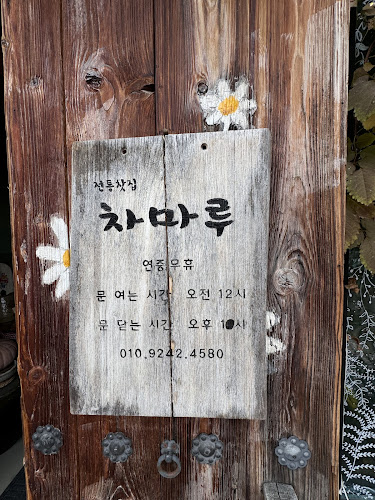 전통찻집
차마루
연중무휴
문 여는 시간 오전 12시
문 닫는 시간 오후 시
010.9242.4580